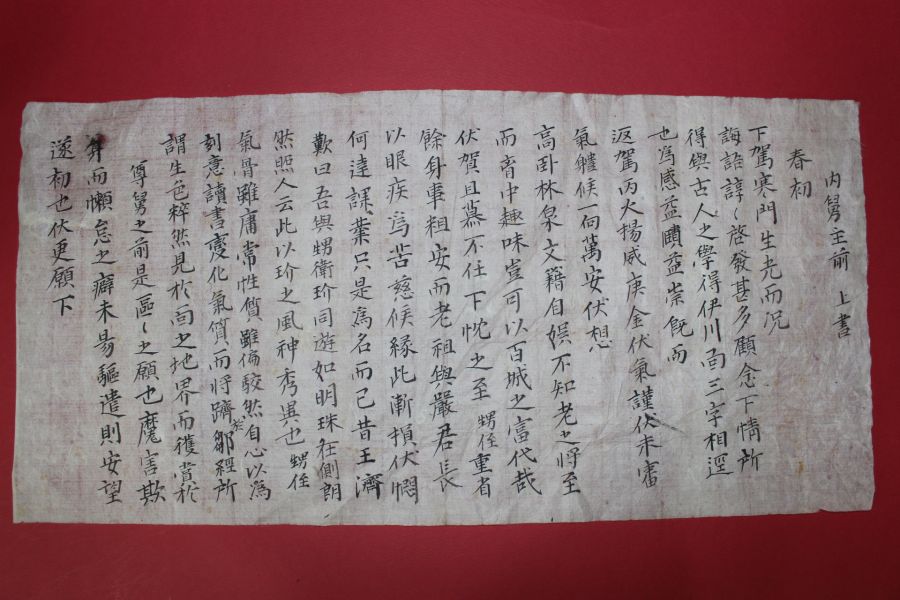 內舅主前 上書
春初
下駕寒門生光而況
誨諭諄〻啓發甚多顧念下情所
得與古人之學得伊川面三字相逕
也爲感益賾益崇旣而
返駕丙火揚威庚金伏氣謹伏未審
氣軆候一向萬安伏想
高卧林泉文籍自娛不知老之將至
而胷中趣味豈可以百城之富代哉
伏賀且慕不任下忱之至 甥侄重省
餘身事粗安而老祖與嚴君長
以眼疾爲苦慈候緣此漸損伏悶
何達課業只是爲名而已昔王濟
歎曰吾與甥衛玠同遊如明珠在側朗
然照人云此以玠之風神秀異也 甥侄
氣骨雖庸常性質雖偏駁然自心以爲
刻意讀書變化氣質而將躋於鄒經所
謂生色粹然見於面之地界而獲嘗於
尊舅之前是區〻之願也魔害欺
身而懶怠之癖未易驅遣則安望
遂初也伏更願下